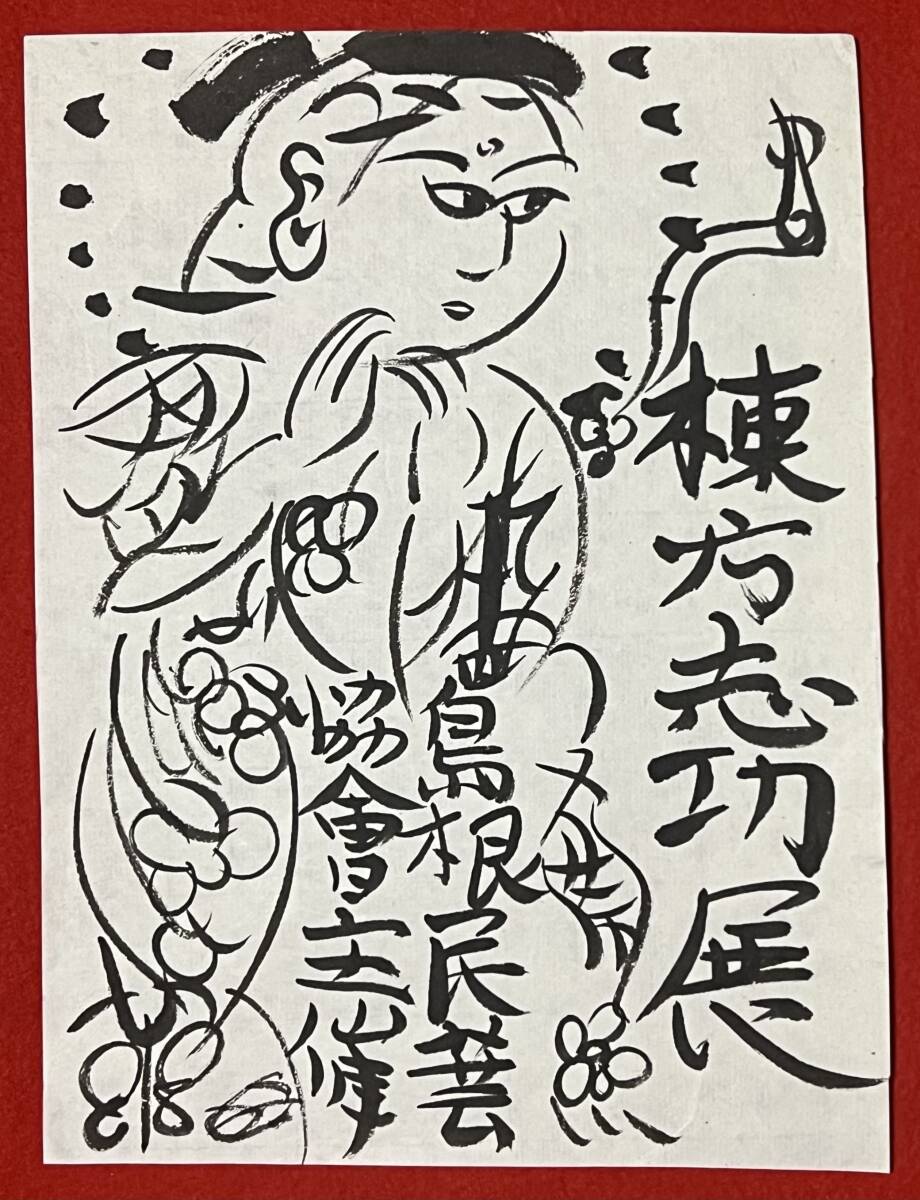 棟方志功展
島根民芸
協會主催